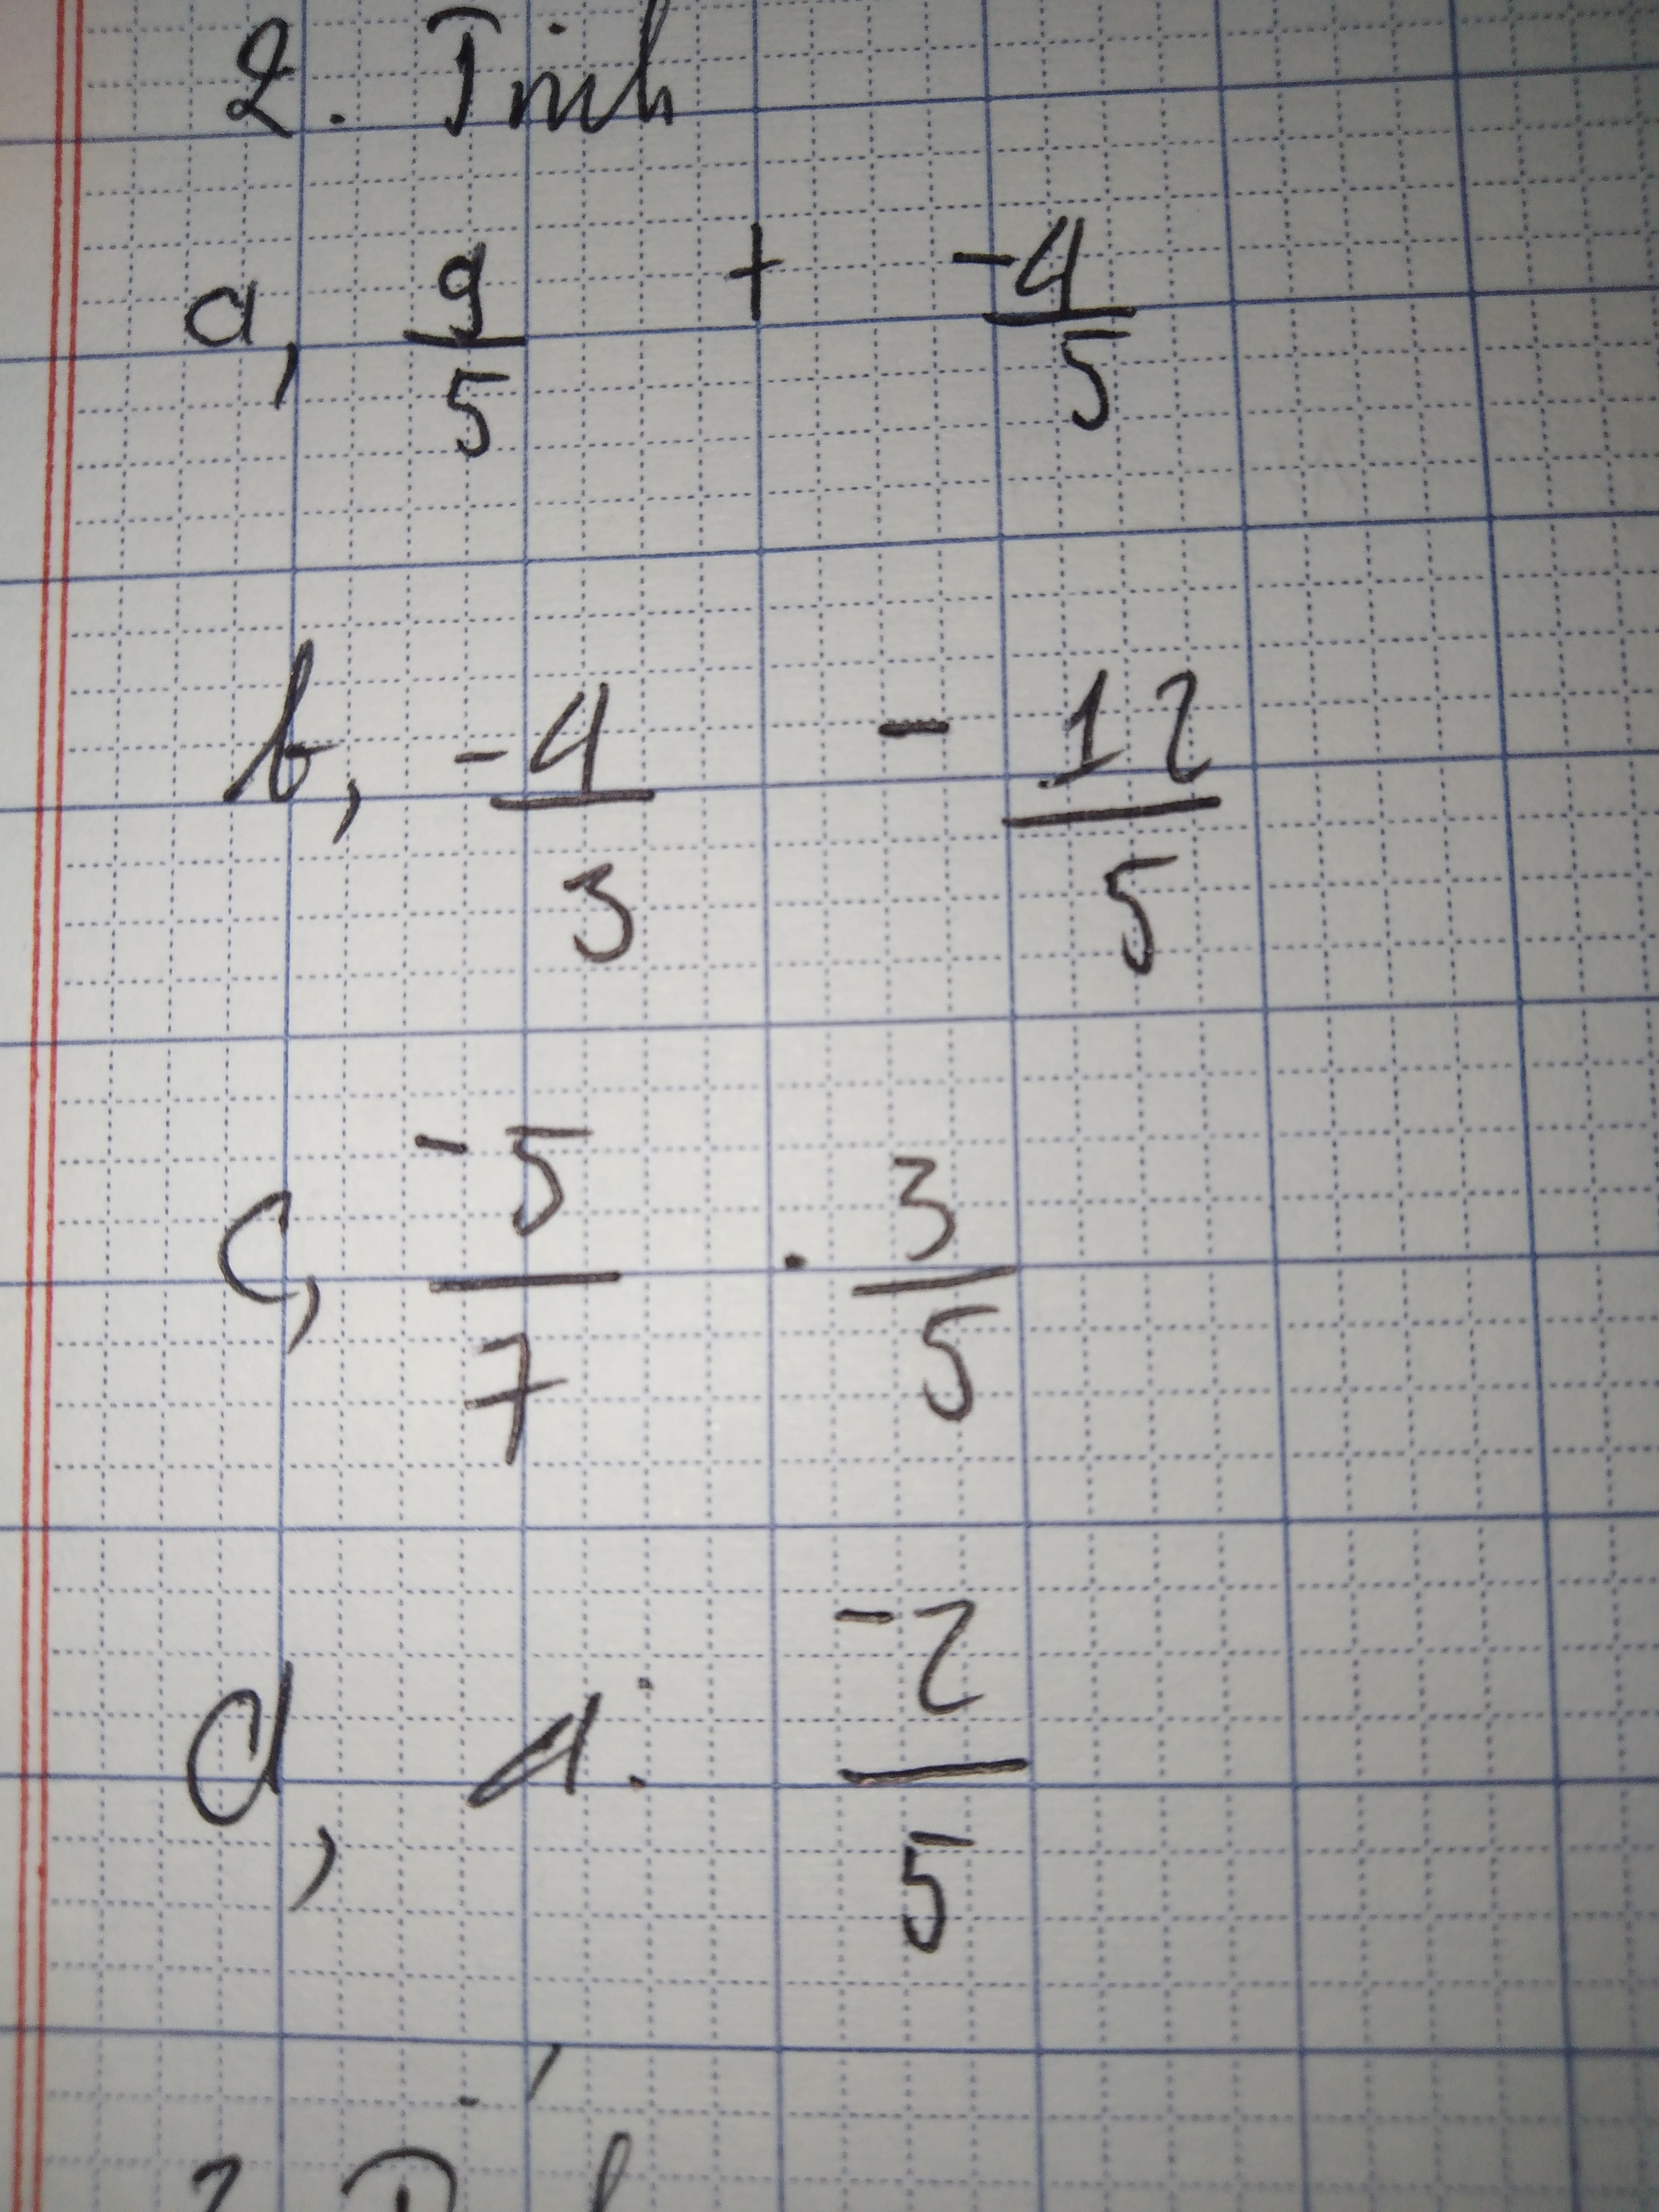 2. Tính
a, 9/5 + -4/5
b, -4/3 - 12/5
c, -5/7 . 3/5
d, 1 : -2/5